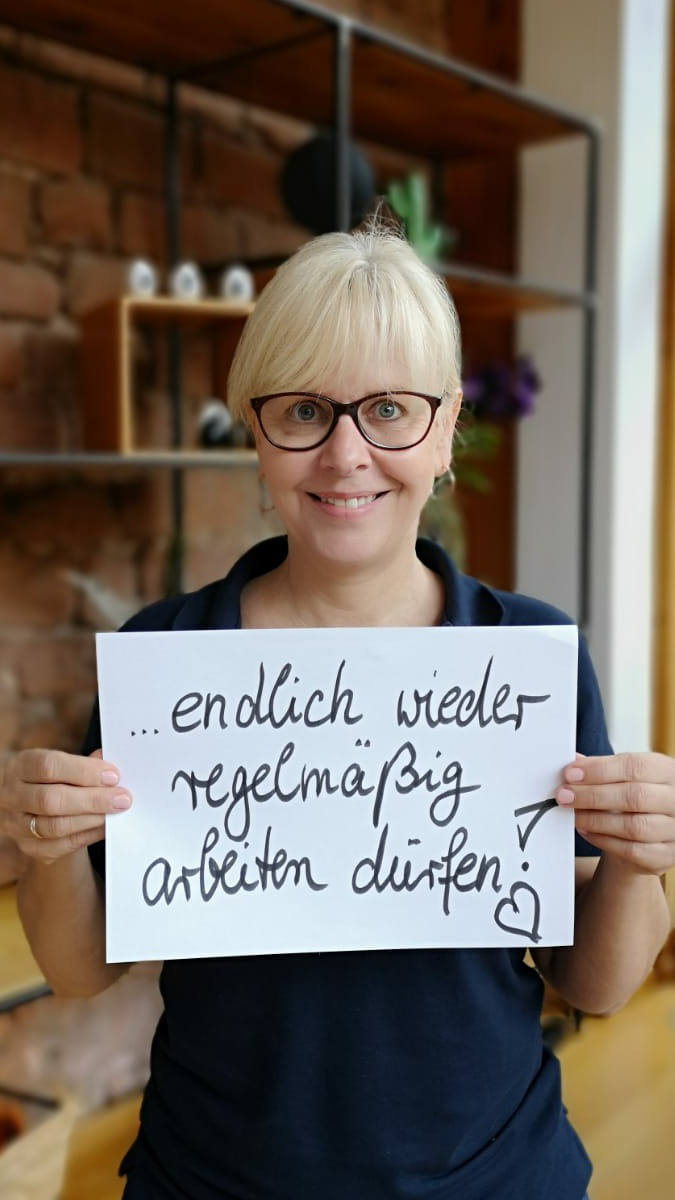 ...endlich wieder
regelmäßig
arbeiten dürfen!